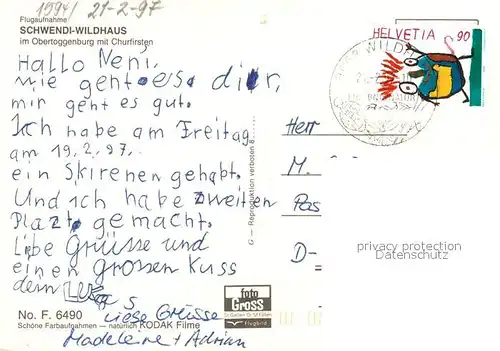 1594/ 21-2-97
Flugaufnahme
SCHWENDI-WILDHAUS
im Obertoggenburg mit Churfirsten
HELVETIA 90
WILDH
Hallo Neni,
wie geht es dir,
mir geht es gut.
Ich habe am Freitag
am 19.2.97.
ein Skirenen gehabt.
Und ich habe zweiten
Plazt gemacht.
Libe Grüsse und
einen grossen Kuss
dein
Liebe Grüsse
Madeleine + Adrian
Herr
M.
Pas
D-
privacy protection
Datenschutz
G — Reproduktion verboten
foto
Gross
St. Gallen
Flugbild
No. F. 6490
Schöne Farbaufnahmen — natürlich KODAK Filme